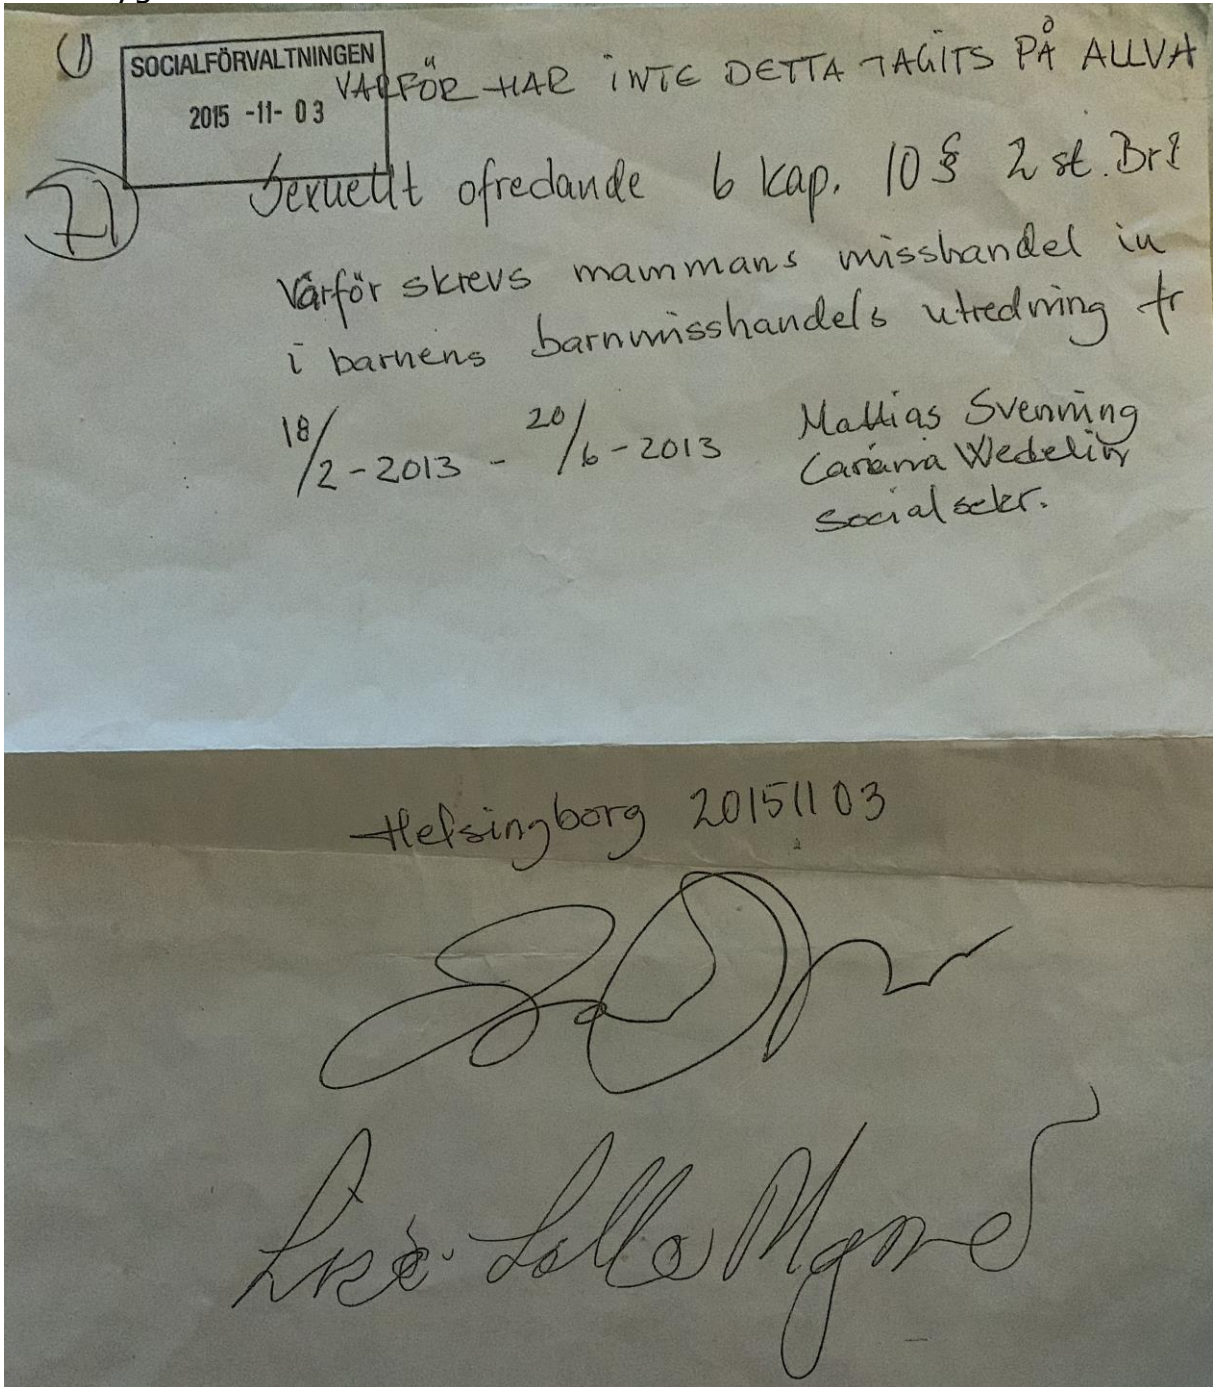 ①
SOCIALFÖRVALTNINGEN
2015 -11- 03
VARFÖR HAR INTE DETTA TAGITS PÅ ALLVA
21
Sexuellt ofredande 6 kap. 10 § 2 st. Br
Varför skrevs mammans misshandel in
i barnens barnmisshandels utredning fr
18/2-2013 - 20/6-2013
Mattias Svenning
Carania Wedelin
Socialsekr.
Helsingborg 20151103